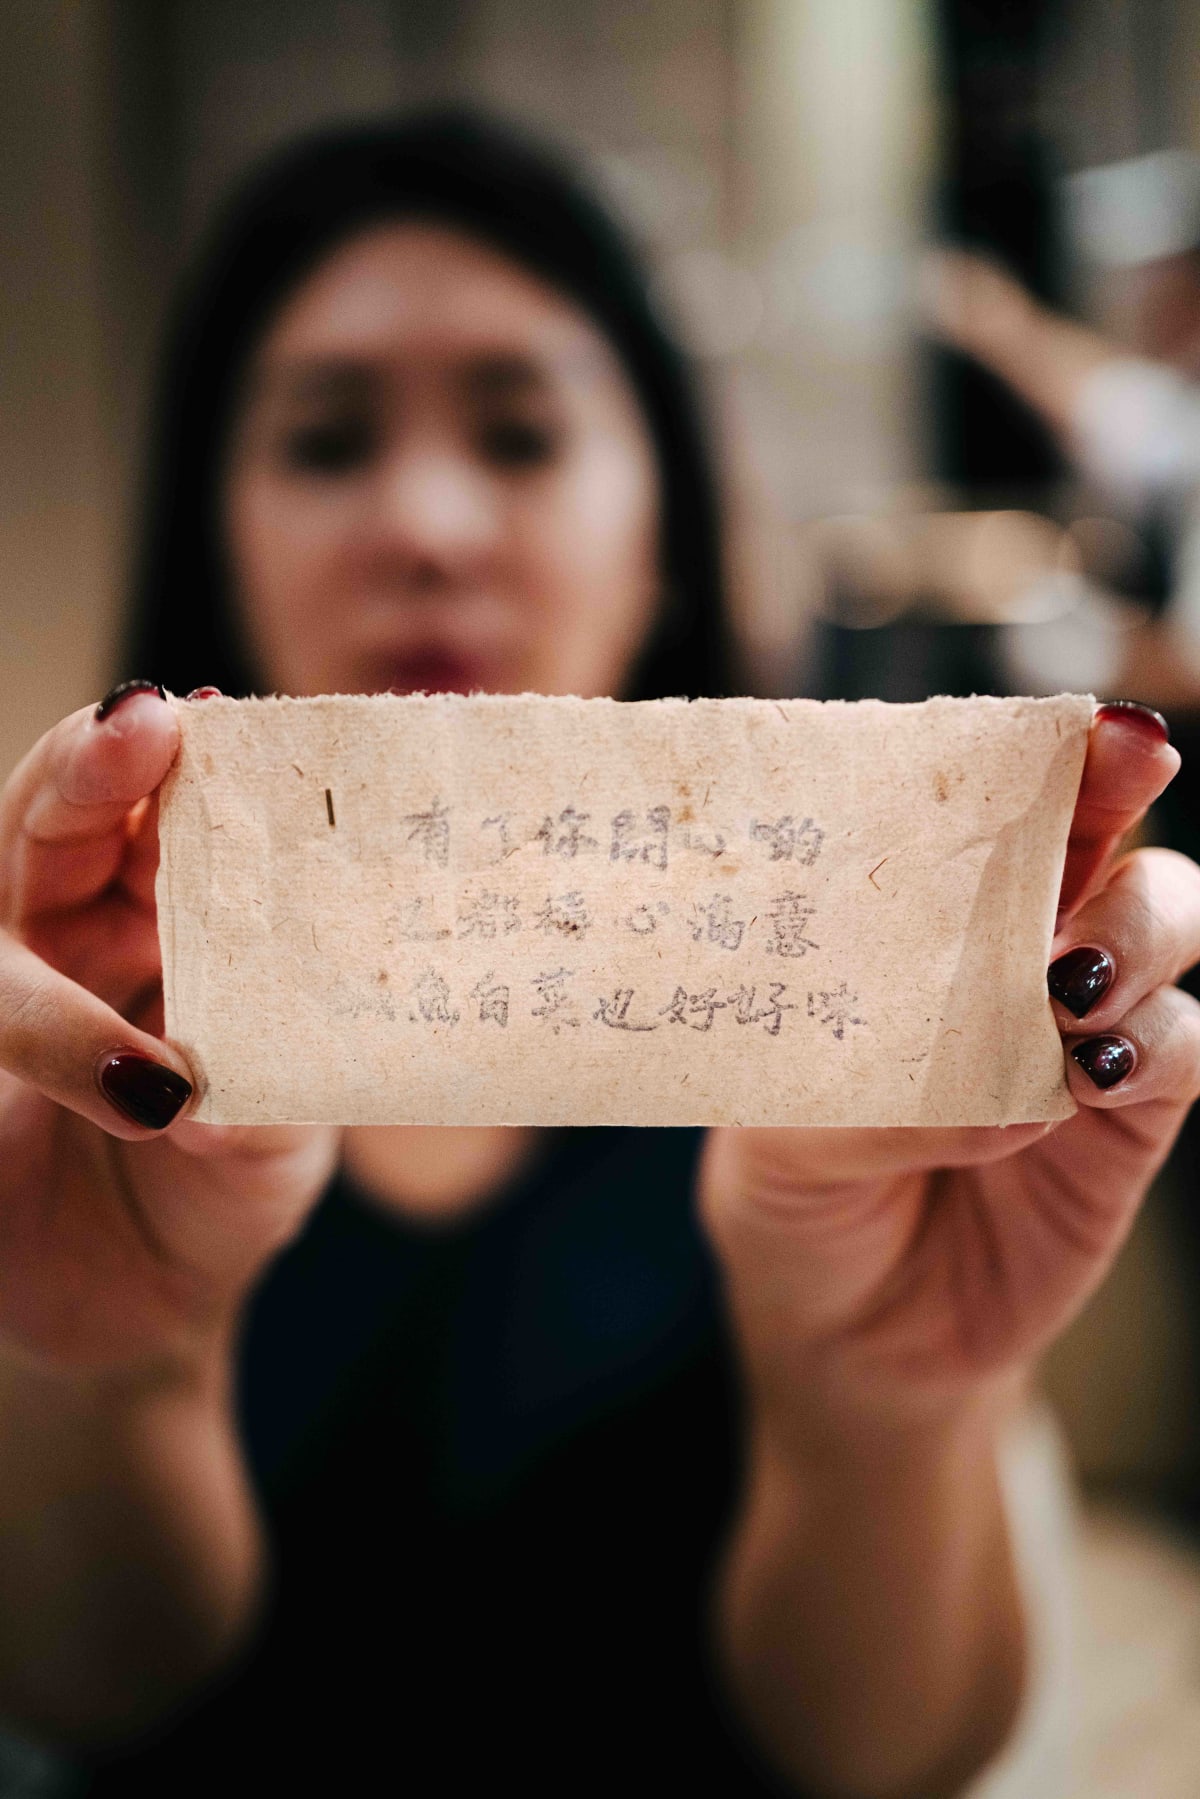 有了你開心啲
乜都稱心滿意
鹹魚白菜也好好味